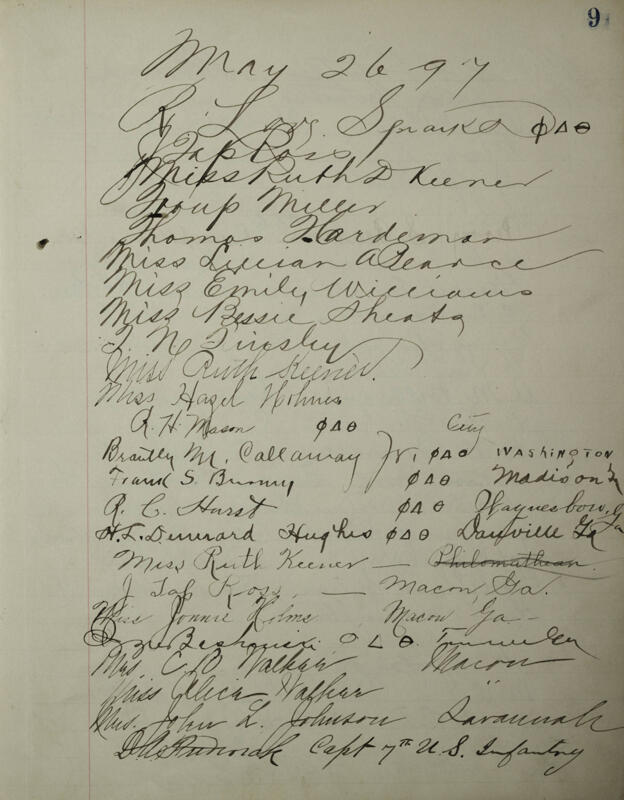 9
May 26 97
R. Long Sparks ΦΔΘ
J. Tap Ross
Miss Ruth D Keener
Troup Miller
Thomas Hardeman
Miss Lillian A Pearce
Miss Emily Williams
Miss Bessie Sheats
T N Tinsley
Miss Ruth Keener.
Miss Hazel Holmes
R. H. Mason ΦΔΘ City
Brantly M. Callaway Jr. ΦΔΘ WASHINGTON
Frank S. Burney ΦΔΘ Madison Ga
R. C. Hurst ΦΔΘ Waynesboro, Ga
H. F. Dennard Hughes ΦΔΘ Danville Ga
Miss Ruth Keener — Philomathean
J Tap Ross. — Macon, Ga.
Miss Jonnie Holms Macon Ga -
ΔΘ
Mrs. C B Walker Macon
Miss Alice Walker "
Mrs. John L. Johnson Savannah
Capt 7th U.S. Infantry